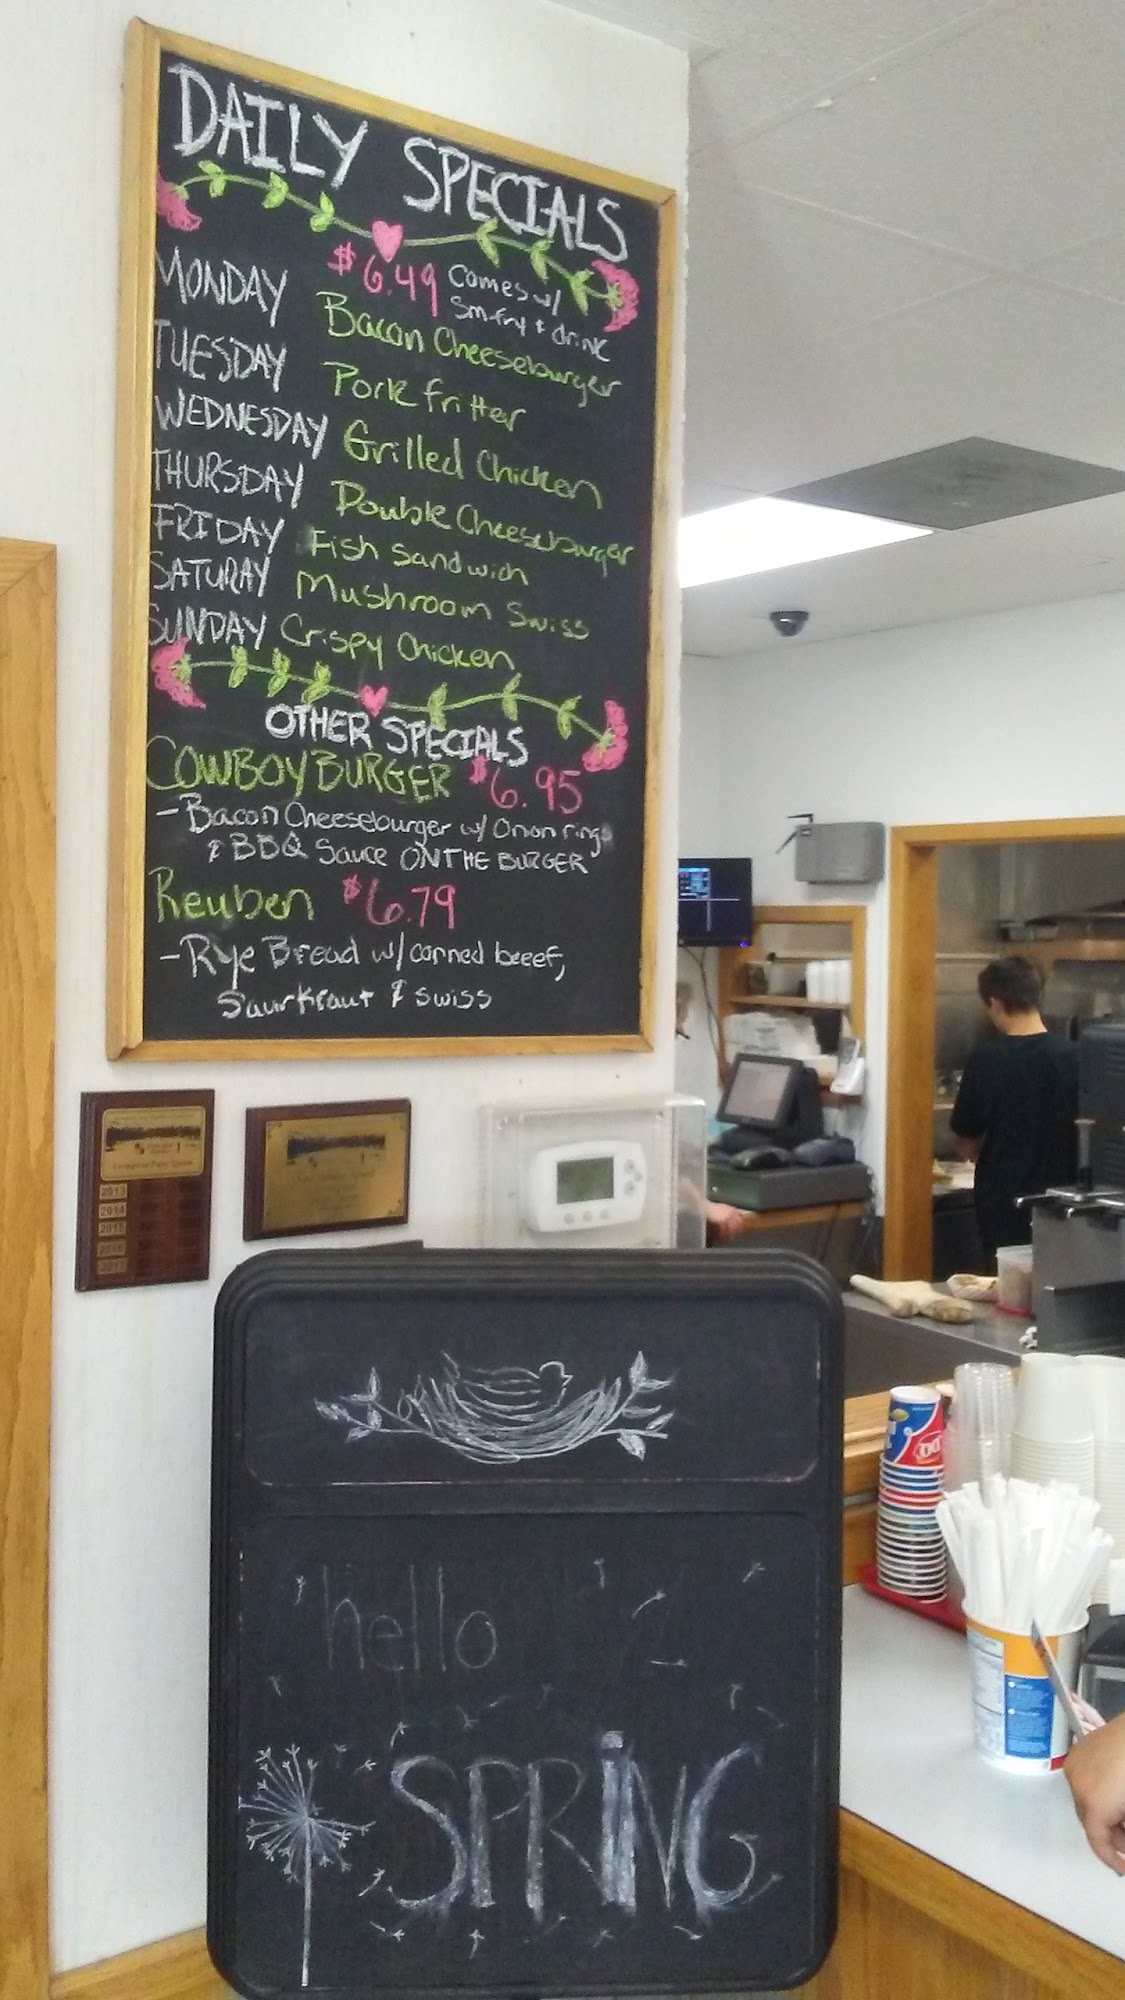 DAILY SPECIALS
$6.49 comes w/
sm. fry & drink
MONDAY Bacon Cheeseburger
TUESDAY Pork fritter
WEDNESDAY Grilled Chicken
THURSDAY Double Cheeseburger
FRIDAY Fish Sandwich
SATURAY Mushroom Swiss
SUNDAY Crispy Chicken
OTHER SPECIALS
COWBOY BURGER $6.95
- Bacon Cheeseburger w/ Onion rings
& BBQ Sauce ON THE BURGER
Reuben $6.79
- Rye Bread w/ corned beeef,
Saurkraut & Swiss
2013
2014
2015
2016
2017
hello
SPRiNG
DQ